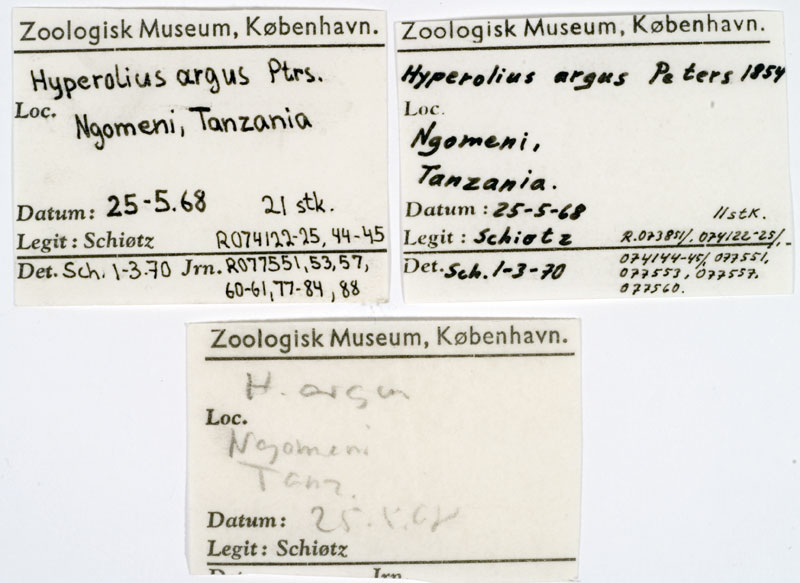 Zoologisk Museum, København.
Hyperolius argus Ptrs.
Loc.
Ngomeni, Tanzania
Datum: 25-5.68 21 stk.
Legit: Schiøtz R074122-25, 44-45
Det. Sch. 1-3.70 Jrn. R077551, 53, 57,
60-61, 77-84, 88
Zoologisk Museum, København.
Hyperolius argus Peters 1854
Loc.
Ngomeni,
Tanzania.
Datum: 25-5-68 11 stk.
Legit: Schiøtz R.073851/, 074122-25/, -
Det. Sch. 1-3-70 074144-45/, 077551,
077553, 077557,
077560.
Zoologisk Museum, København.
H. argus
Loc.
Ngomeni
Tanz.
Datum: 25.5.68
Legit: Schiøtz
Jrn.